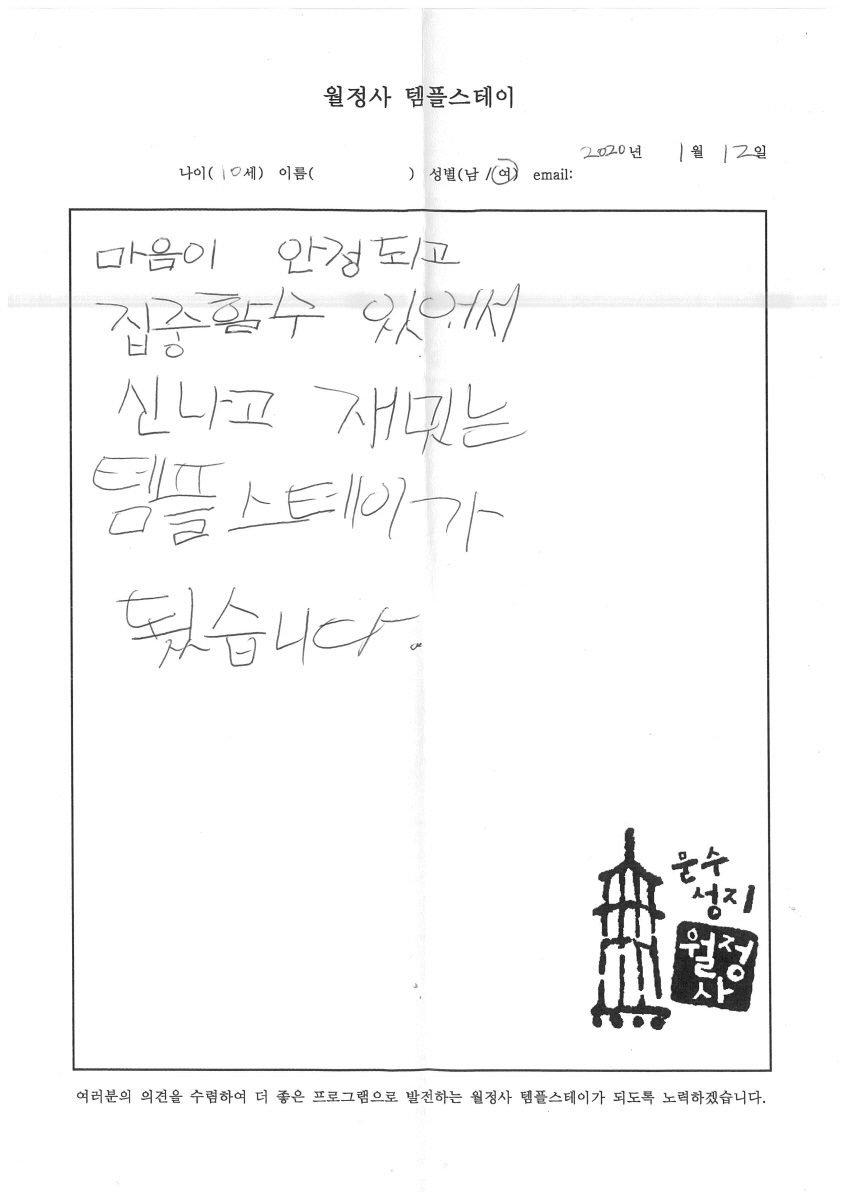 월정사 템플스테이
2020년 1월 12일
나이( 10세) 이름( ) 성별(남 /여) email:
마음이 안정되고
집중할수 있어서
신나고 재밋는
템플스테이가
됬습니다.
문수
성지
월정
사
여러분의 의견을 수렴하여 더 좋은 프로그램으로 발전하는 월정사 템플스테이가 되도록 노력하겠습니다.